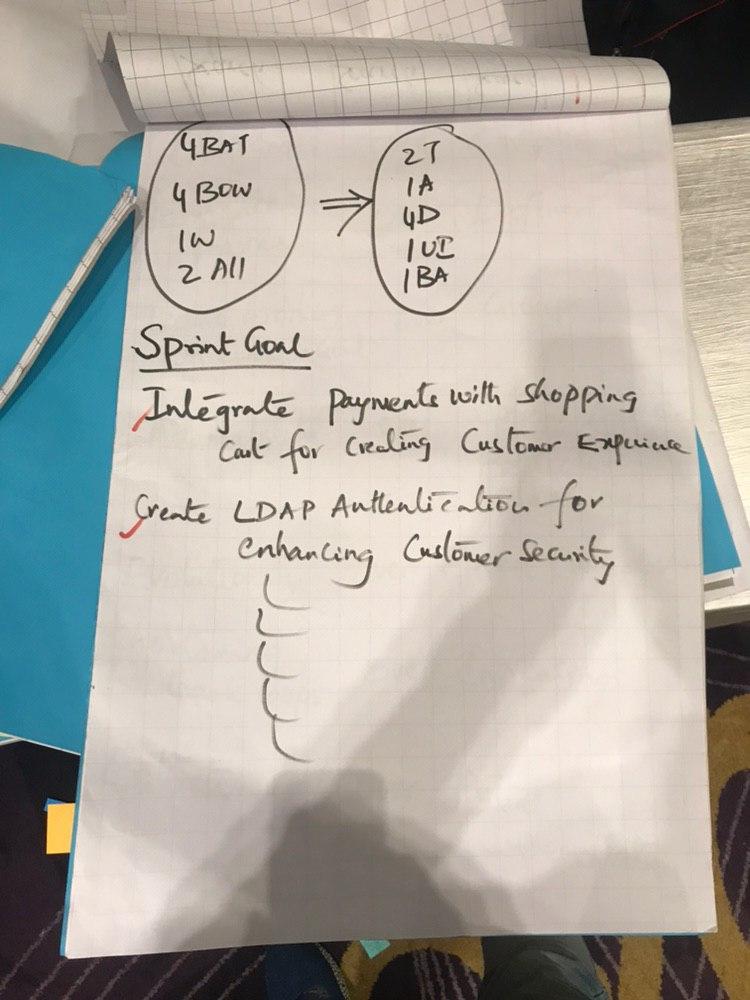 4 BAT
4 BOW
1W
2 All
2T
1A
4D
1UI
1BA
Sprint Goal
Integrate payments with shopping
Cart for Creating Customer Experience
Create LDAP Authentication for
enhancing Customer Security